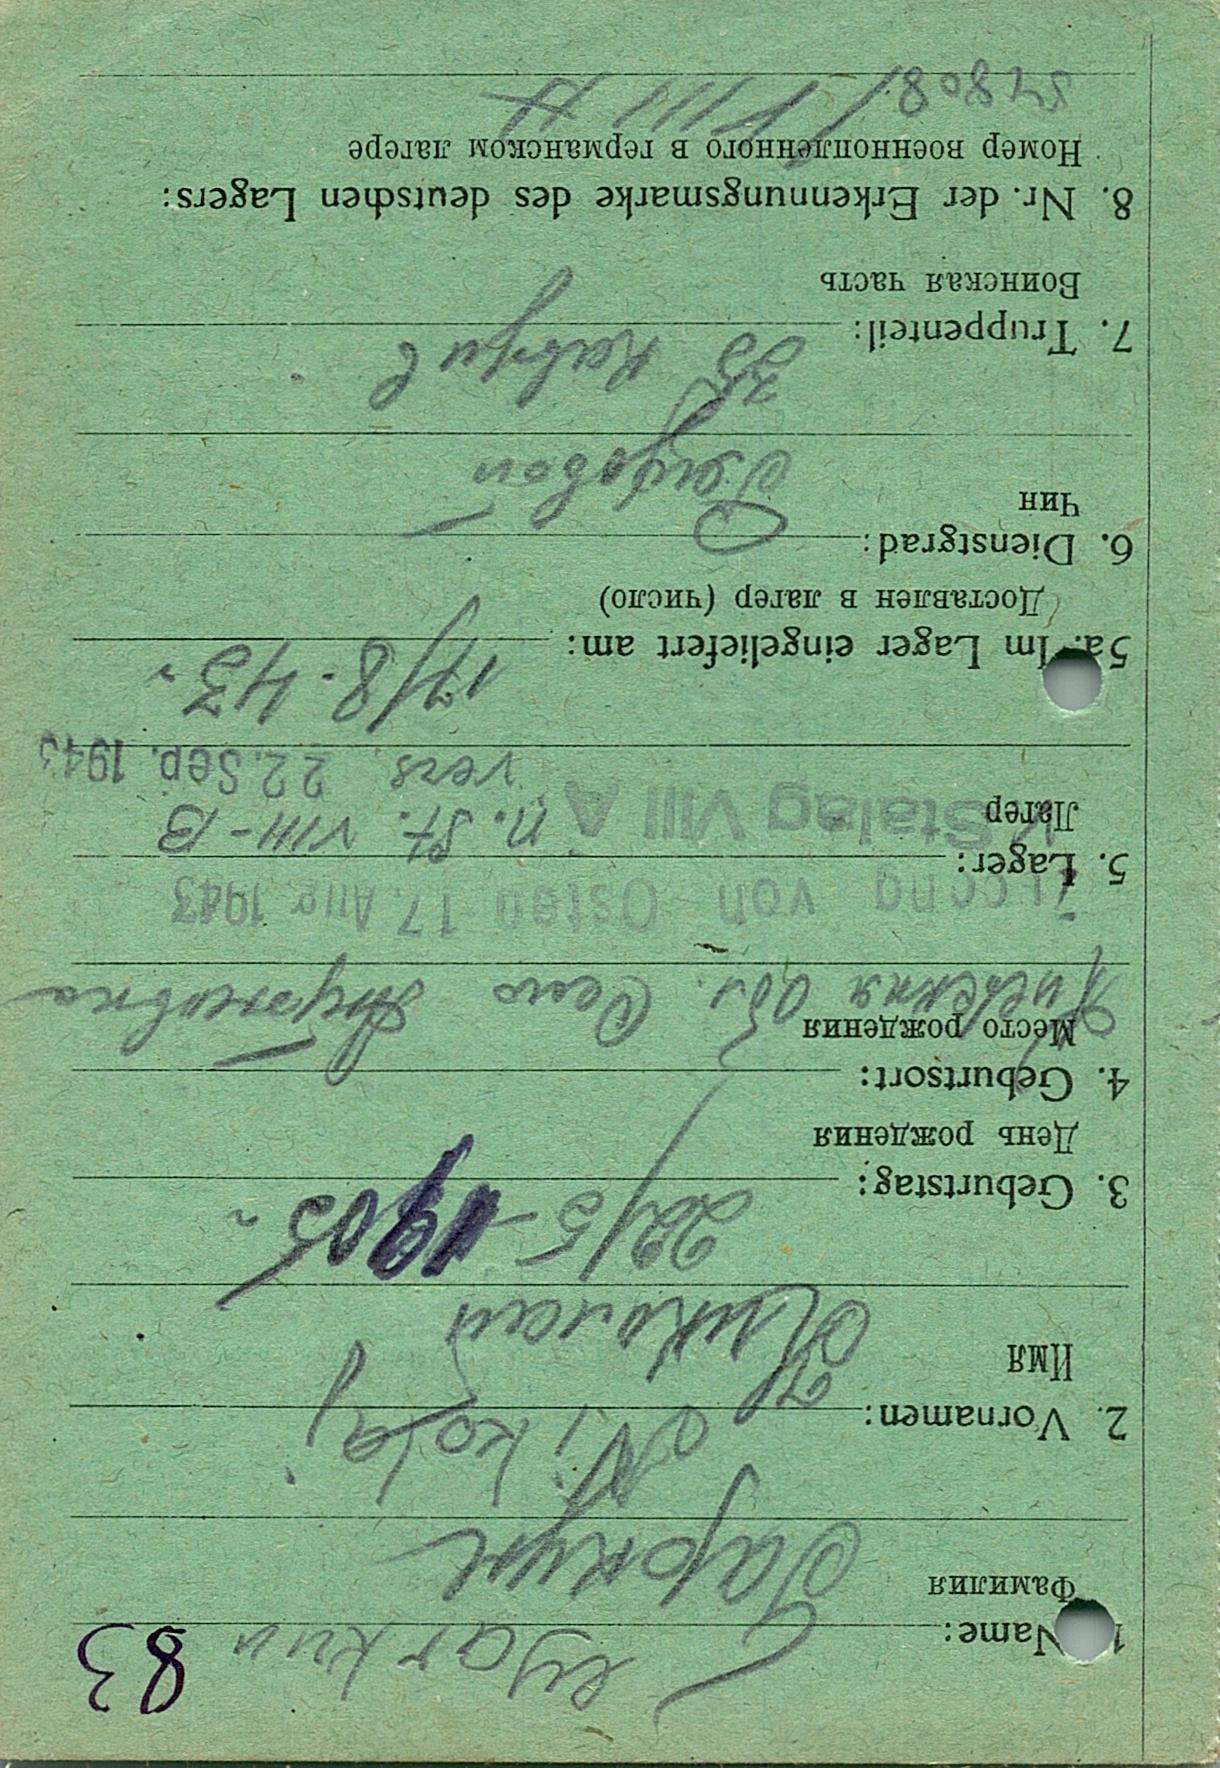 83
Name:
Фамилия
2. Vornamen: Nikolaj
Имя Николай
3. Geburtstag: 22/5-1905 г
День рождения
4. Geburtsort:
Место рождения
Киевская обл. Село
Zugang von Osten 17. Aug. 1943
5. Lager: n. St. VIII-B
Лагер Stalag VIII A
vers. 22. Sep. 1943
5a. Im Lager eingeliefert am: 17/8-43 г
Доставлен в лагер (число)
6. Dienstgrad:
Чин
Рядовой
7. Truppenteil: 35
Воинская часть
8. Nr. der Erkennungsmarke des deutschen Lagers:
Номер военнопленного в германском лагере
51808/VIII A